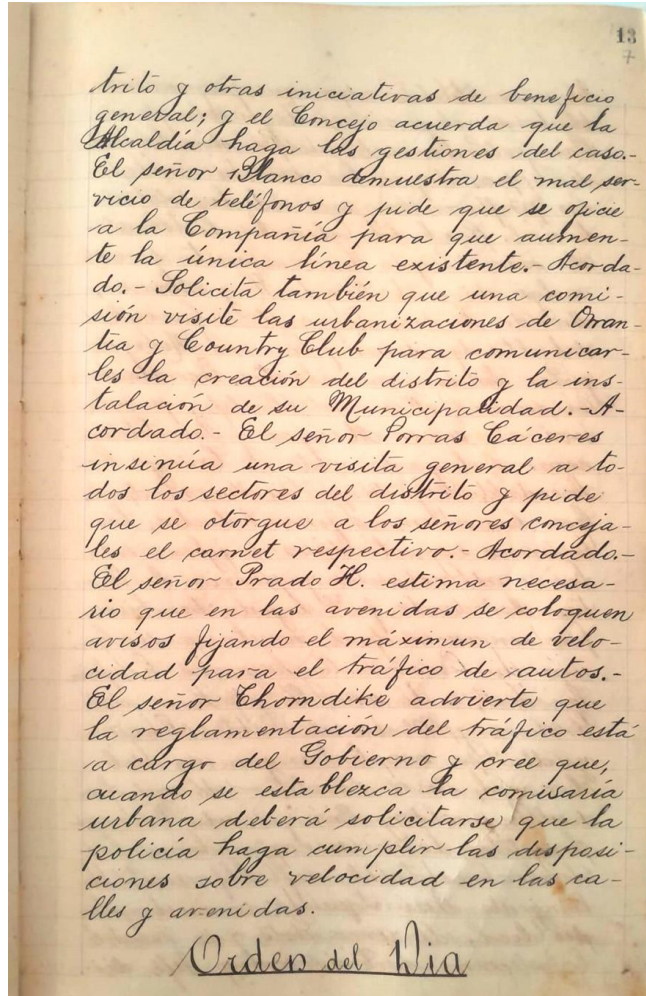 13
7
trito y otras iniciativas de beneficio
general; y el Concejo acuerda que la
Alcaldía haga las gestiones del caso.-
El señor Blanco demuestra el mal ser-
vicio de teléfonos y pide que se oficie
a la Compañía para que aumen-
te la única línea existente.- Acorda-
do.- Solicita también que una comi-
sión visite las urbanizaciones de Orran-
tia y Country Club para comunicar-
les la creación del distrito y la ins-
talación de su Municipalidad.- A-
cordado.- El señor Porras Cáceres
insinúa una visita general a to-
dos los sectores del distrito y pide
que se otorgue a los señores conceja-
les el carnet respectivo.- Acordado.-
El señor Prado H. estima necesa-
rio que en las avenidas se coloquen
avisos fijando el máximun de velo-
cidad para el tráfico de autos.-
El señor Thorndike advierte que
la reglamentación del tráfico está
a cargo del Gobierno y cree que,
cuando se establezca la comisaría
urbana deberá solicitarse que la
policía haga cumplir las disposi-
ciones sobre velocidad en las ca-
lles y avenidas.
Orden del Dia